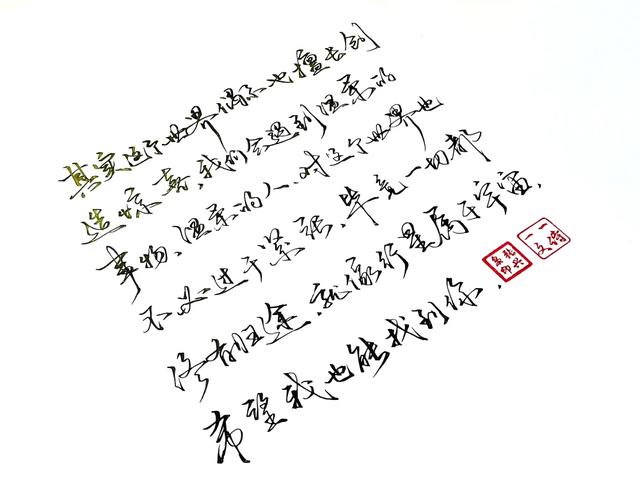 其实这个世界偶尔也擅长创
造惊喜,我们会遇到温柔的
事物、温柔的人、对这个世界也
不必过于紧张,毕竟一切都
终有归途,就像行星属于宇宙,
希望我也能找到你.